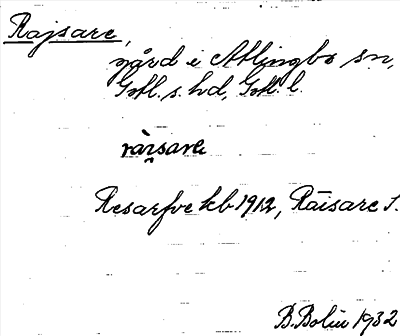 Rajsare,
gård i Atlingbo sn,
Gotl. s. hd, Gotl. l.
ràịsare
Resarfve kb 1912, Räisare S.
B. Bolin 1932